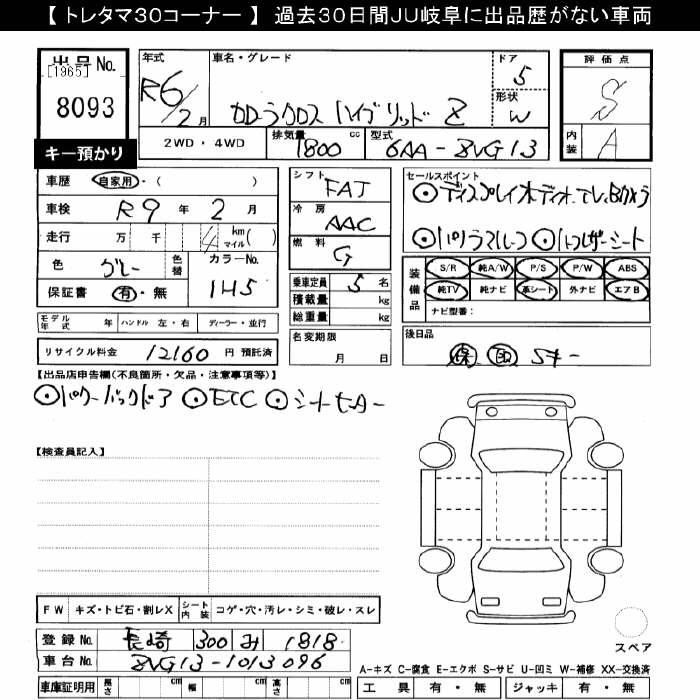 【 トレタマ30コーナー 】 過去30日間JU岐阜に出品歴がない車両
出品No.
[1965]
8093
キー預かり
年式 R6/2月
車名・グレード
カローラクロス ハイブリッド Z
ドア 5
形状 W
評価点 S
内装 A
2WD・4WD
排気量 1800 cc
型式 6AA-ZVG13
車歴 自家用・( )
車検 R9年 2月
走行 万 千 4 km マイル( )
色 グレー 色替
カラーNo. 1H5
保証書 有・無
シフト FAT
冷房 AAC
燃料 G
乗車定員 5名
積載量 kg
総重量 kg
セールスポイント
⊙ディスプレイオーディオ、TV、Bカメラ
⊙パノラマルーフ ⊙ハーフレザーシート
装備品
S/R 純A/W P/S P/W ABS
純TV 純ナビ 革シート 外ナビ エアB
ナビ型番:
モデル年式 年 ハンドル 左・右 ディーラー・並行
リサイクル料金 12160 円 預託済
名変期限
月 日
後日品
保 取 Sキー
【出品店申告欄(不良箇所・欠品・注意事項等)】
⊙パワーバックドア ⊙ETC ⊙シートヒーター
【検査員記入】
FW キズ・トビ石・割レX シート内装 コゲ・穴・汚レ・シミ・破レ・スレ
登録No. 長崎 300 み 1818
車台No. ZVG13-1013096
スペア
A-キズ C-腐食 E-エクボ S-サビ U-凹ミ W-補修 XX-交換済
車庫証明用 長さ cm 幅 cm 高さ cm
工具 有・無 ジャッキ 有・無